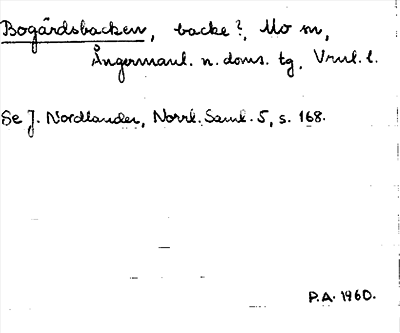 Bogärdsbacken, backe?, Mo sn,
Ångermanl. n. doms. tg, Vrnl. l.
Se J. Nordlander, Norrl. Saml. 5, s. 168.
P.A. 1960.